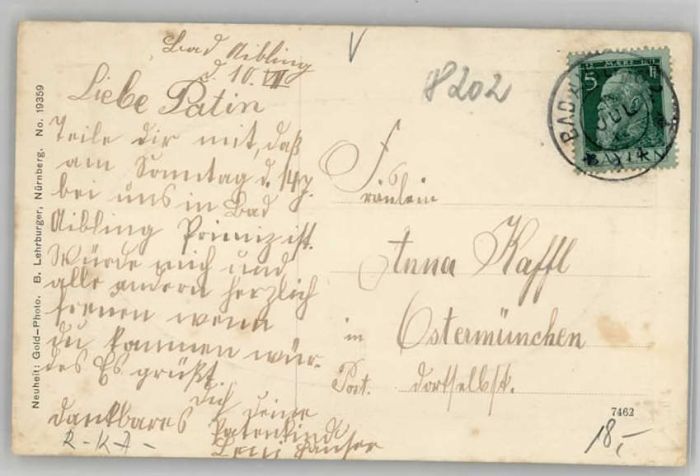 Bad Aibling
d. 10. VII
Liebe Patin
Teile dir mit, daß
am Sonntag d. 14/7.
bei uns in Bad
Aibling Primiz ist.
Würde mich und
alle andern herzlich
freuen wenn
du kommen wür-
des Es grüßt
Dich deine
dankbares Patenkind
Hauser
R-KA-
Neuheit: Gold-Photo. B. Lehrburger, Nürnberg. No. 19359
V
8202
5
BAD AIBLING
JUL
Fräulein
Anna Kaffl
in Ostermünchen
Post. dortselbst.
7462
18,-